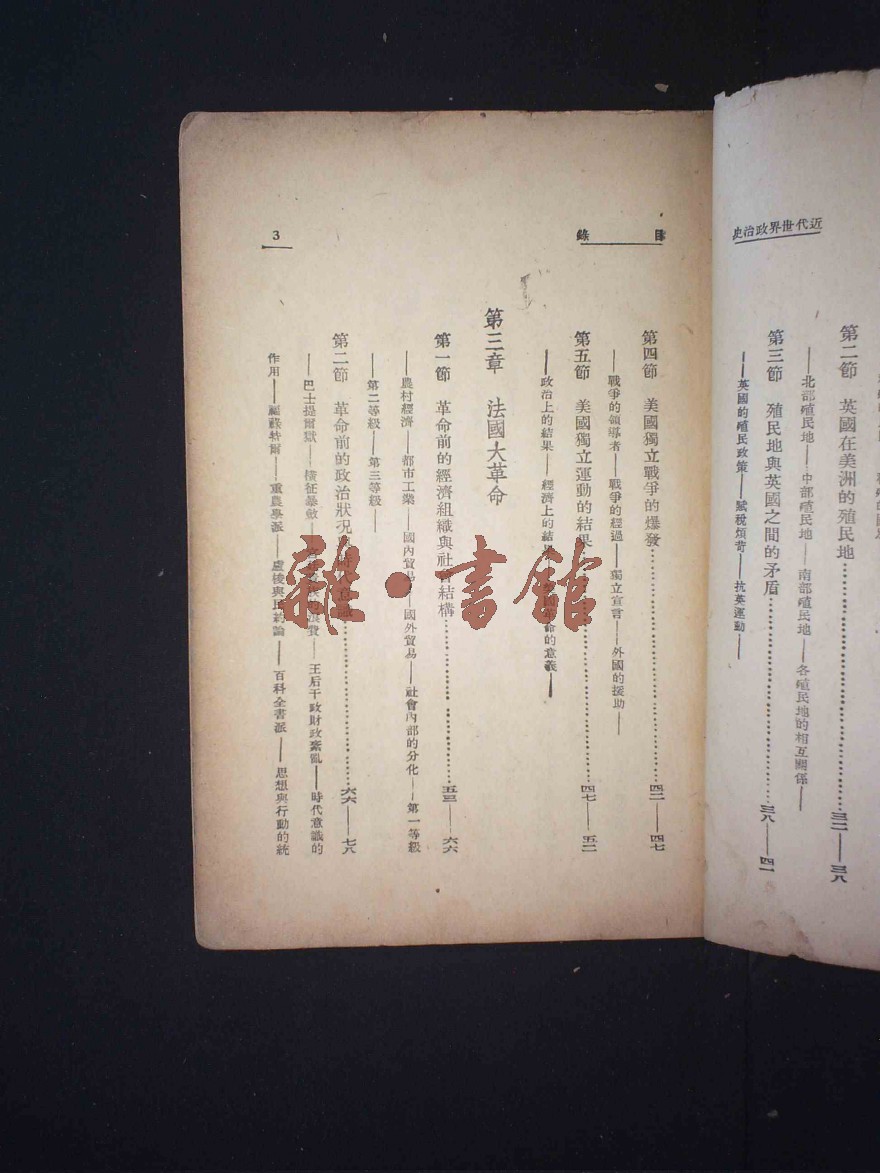 近代世界政治史
第二節 英國在美洲的殖民地……三二——三八
——北部殖民地——中部殖民地——南部殖民地——各殖民地的相互關係——
第三節 殖民地與英國之間的矛盾……三八——四一
——英國的殖民政策——賦稅煩苛——抗英運動——
目錄
3
第四節 美國獨立戰爭的爆發……四二——四七
——戰爭的領導者——戰爭的經過——獨立宣言——外國的援助——
第五節 美國獨立運動的結果……四七——五二
——政治上的結果——經濟上的結果 革命的意義——
第三章 法國大革命
第一節 革命前的經濟組織與社會結構……五三——六六
——農村經濟——都市工業——國內貿易——國外貿易——社會內部的分化——第一等級
——第二等級——第三等級——
第二節 革命前的政治狀況 時代意識……六六——七八
——巴士提爾獄——橫征暴斂 費——王后干政財政紊亂——時代意識的
作用——福祿特爾——重農學派——盧梭與民約論——百科全書派——思想與行動的統
雜·書館